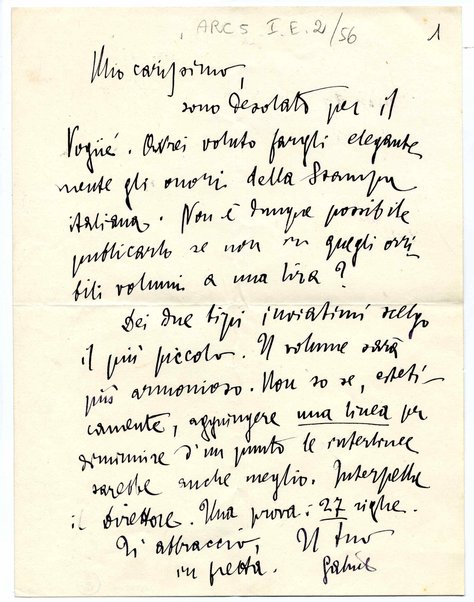 ARC 5 I.E.2/56
1
Mio carissimo,
sono desolato per il
Vogüé. Avrei voluto fargli elegante
mente gli onori della Stampa
italiana. Non è dunque possibile
pubblicarlo se non in quegli orri
bili volumi a una lira?
Dei due tipi inviatimi scelgo
il più piccolo. Il volume sarà
più armonioso. Non so se, esteti-
camente, aggiungere una linea per
diminuire d'un punto le interlinee
sarebbe anche meglio. Interpella
il Direttore. Una prova: 27 righe.
Ti abbraccio, Il tuo
in fretta. Gabriel